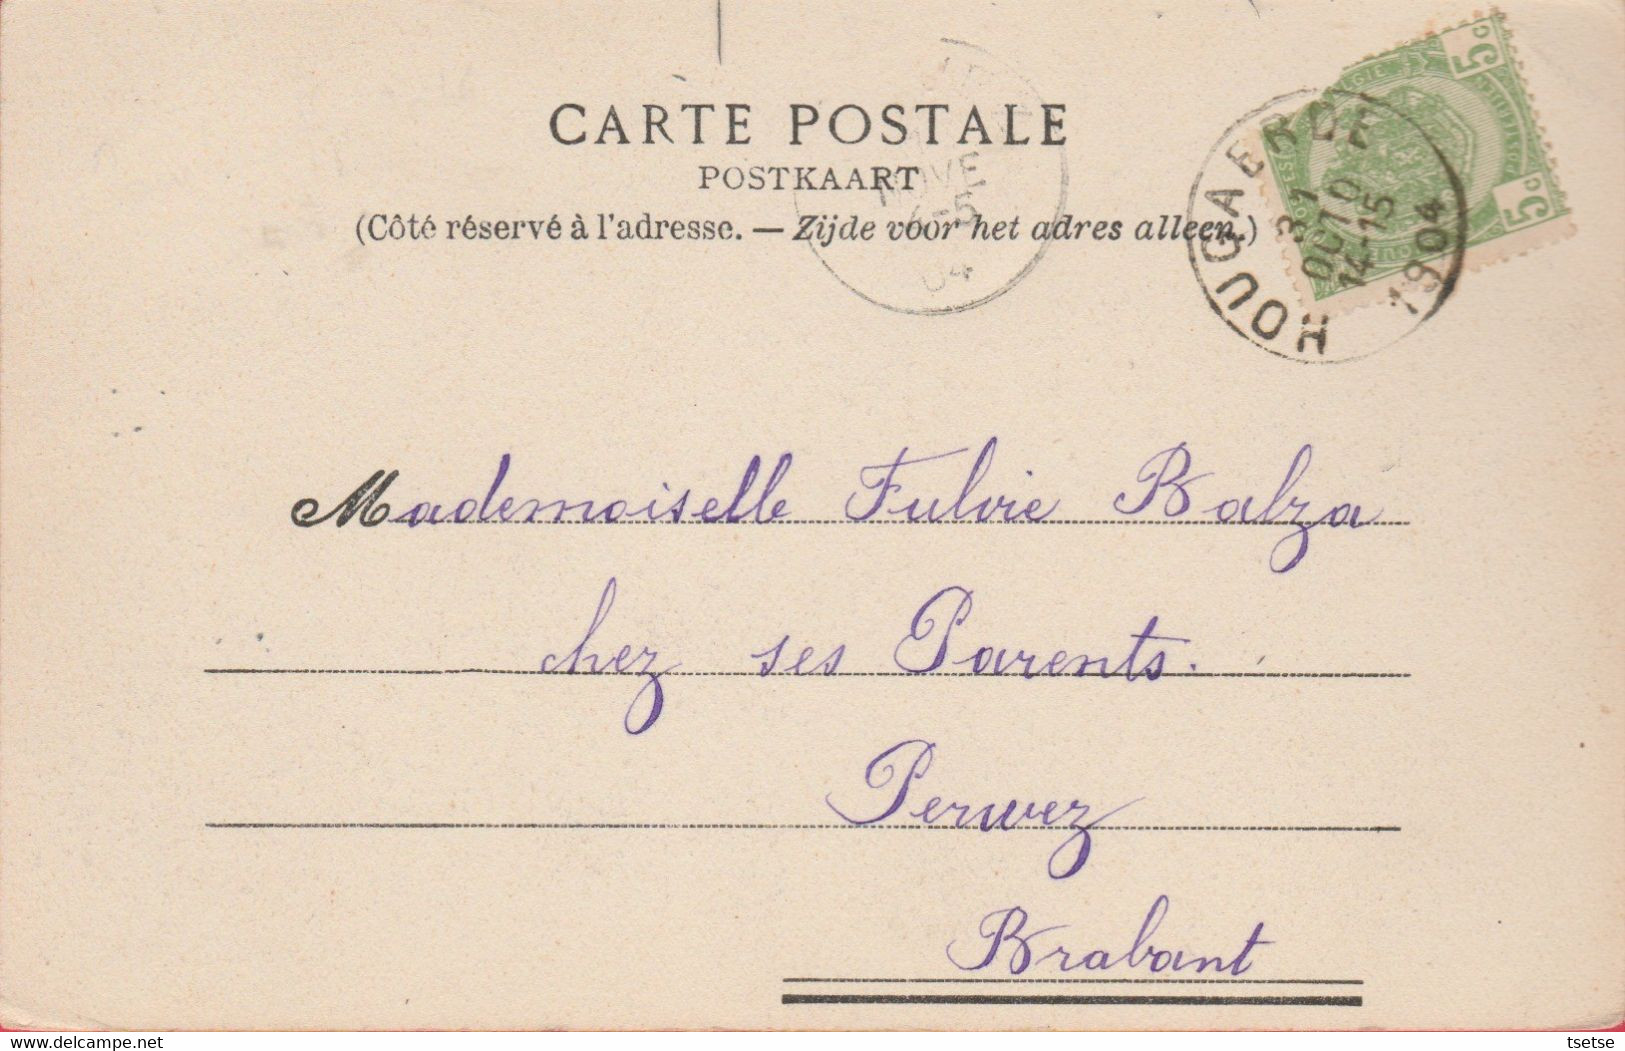 CARTE POSTALE
POSTKAART
(Côté réservé à l'adresse. — Zijde voor het adres alleen.)
5c
5c
HOUGAERDE
31
OCTO
14-15
1904
NOVE
6-5
04
Mademoiselle Fulvie Balza
chez ses Parents.
Perwez
Brabant
delcampe.net
tsetse